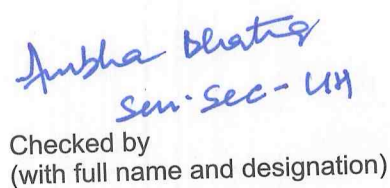 Anubha Bhatia
Sen. Sec - UH
Checked by
(with full name and designation)